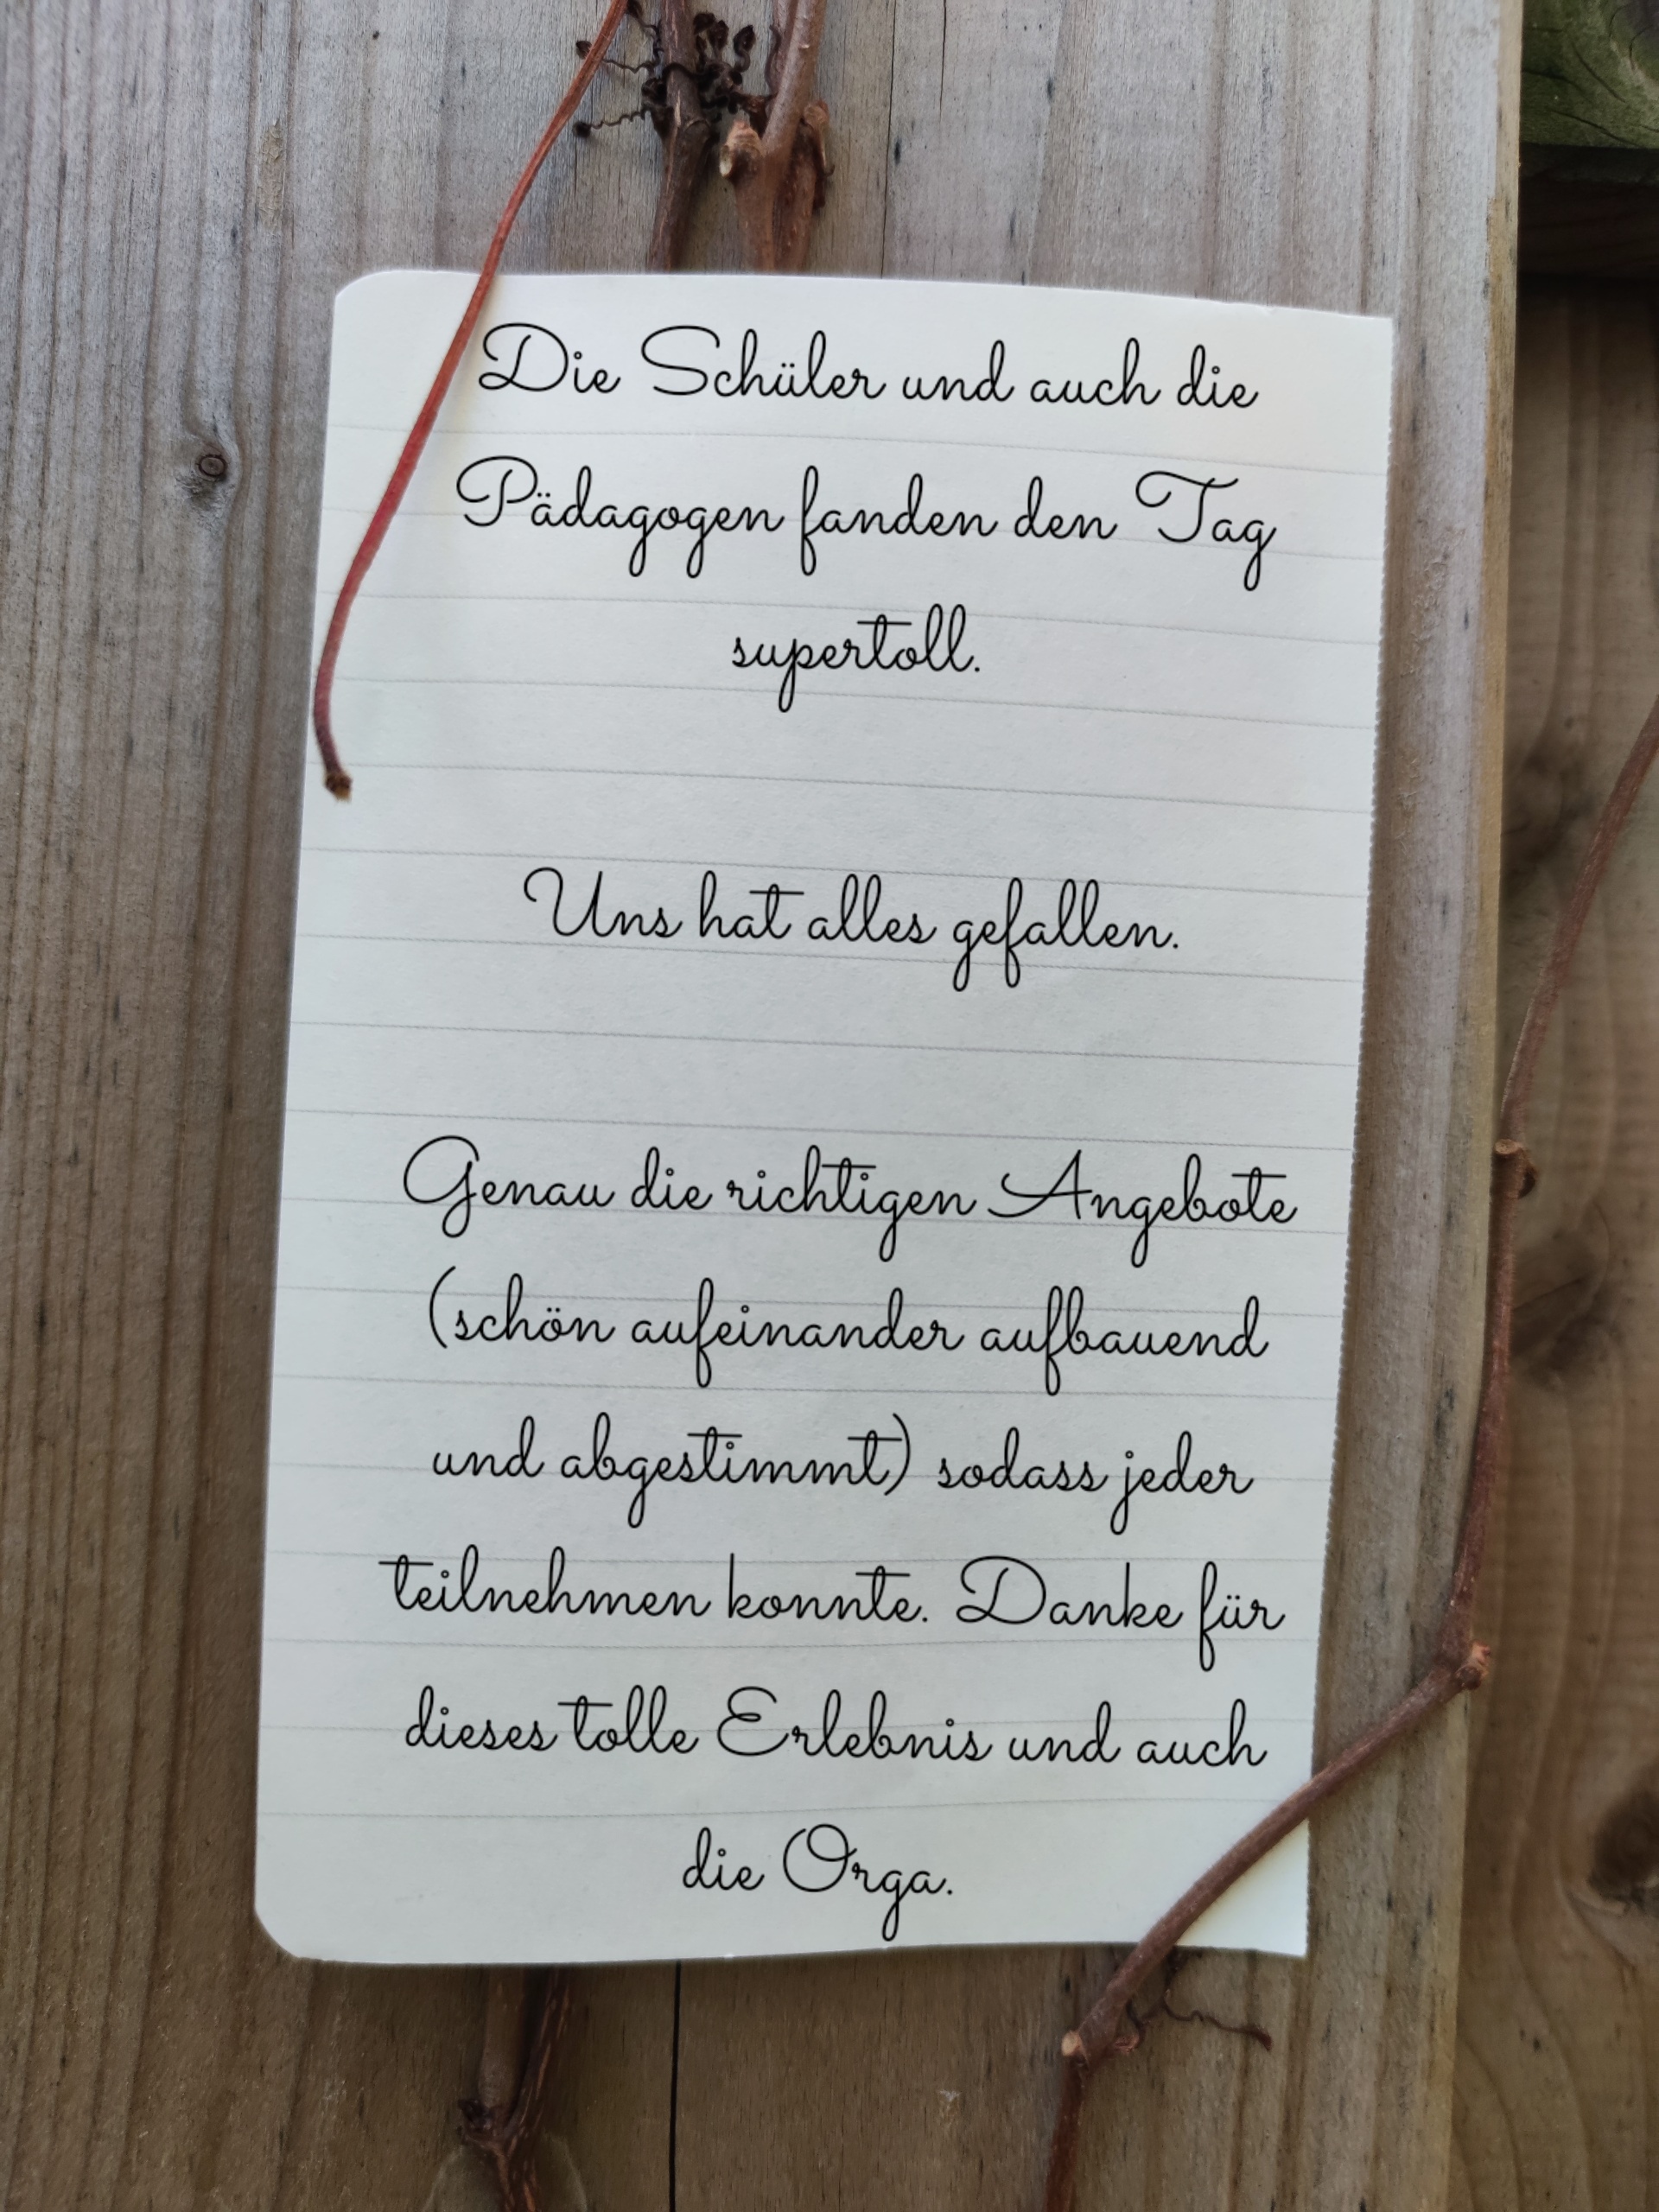 Die Schüler und auch die
Pädagogen fanden den Tag
supertoll.
Uns hat alles gefallen.
Genau die richtigen Angebote
(schön aufeinander aufbauend
und abgestimmt) sodass jeder
teilnehmen konnte. Danke für
dieses tolle Erlebnis und auch
die Orga.